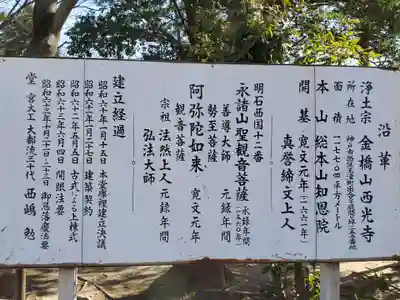 沿革
浄土宗 金橋山西光寺
所在地 神戸市西区玉津町出合
面積 一、七七〇平方メートル
本山 総本山知恩院
開基 寛文元年(一六六一年)
真誉締文上人
明石西国十二番
永諸山聖観音菩薩 永録年間
善導大師 元録年間
勢至菩薩
阿弥陀如来 寛文元年
観音菩薩
宗祖 法然上人 元録年間
弘法大師
建立経過
昭和六十年一月十五日 本堂庫裡建立決議
昭和六二年一月二十日 建築契約
昭和六二年五月五日 古式による上棟式
昭和六三年六月四日 開眼法要
昭和六三年十月二十二日二十三日 御遷座落慶法要
堂宮大工 大都流三十代 西嶋勉